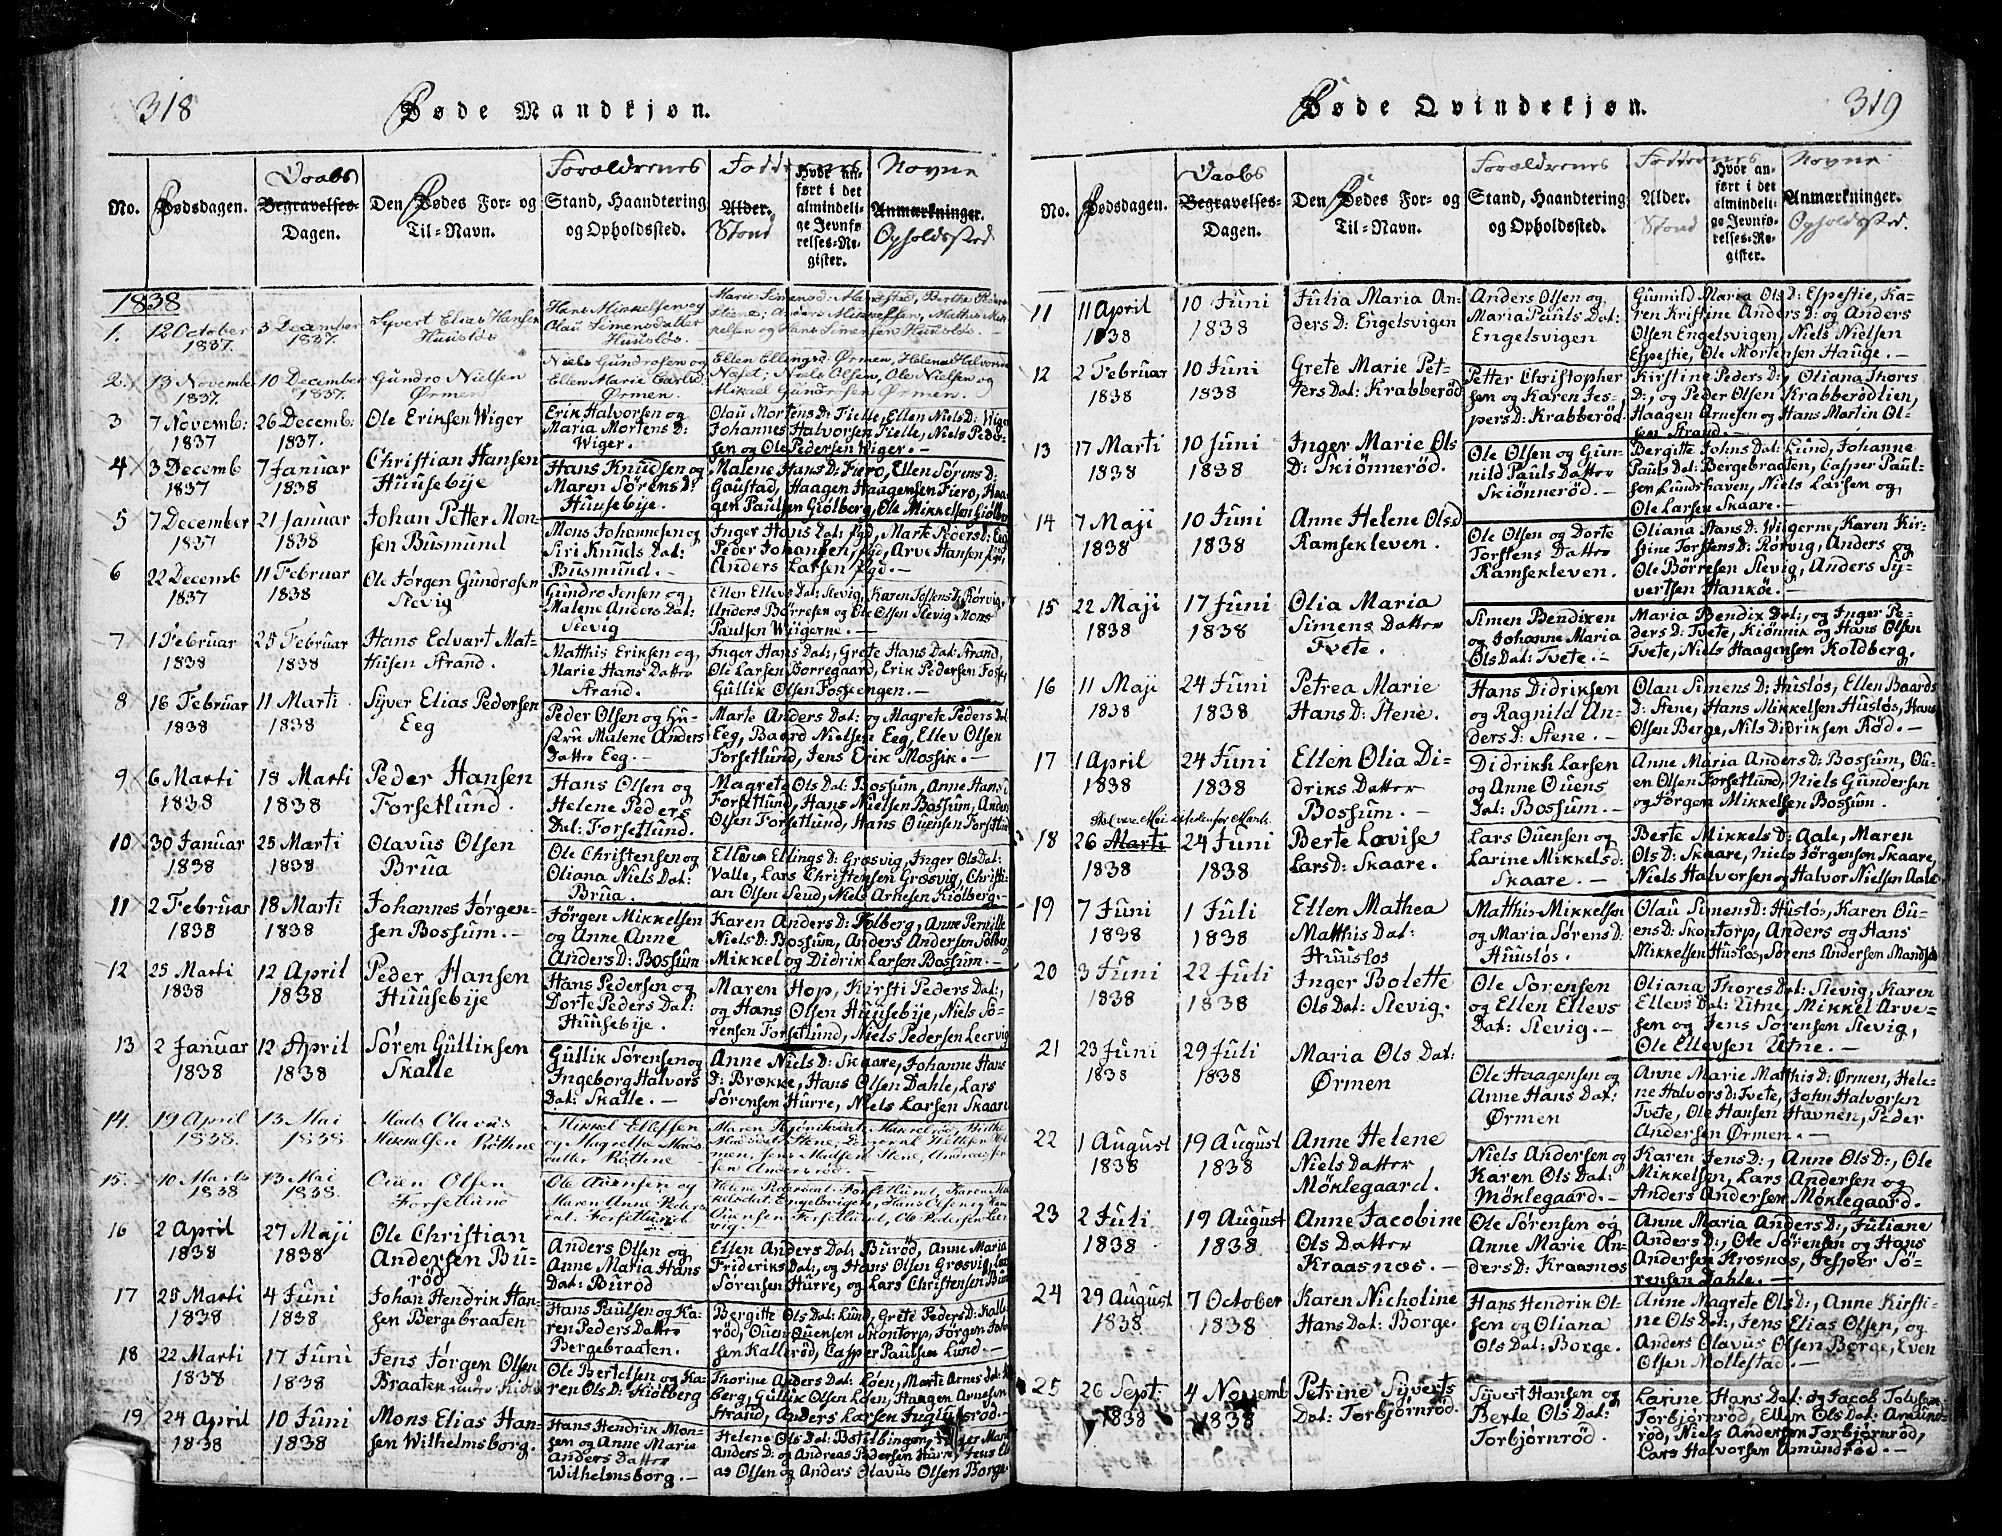 318
Føde Mandkjøn.
No.
Fødsdagen.
Daabs
Begravelses-
Dagen.
Den Fødes For- og
Til-Navn.
Forældrenes
Stand, Haandtering
og Opholdssted.
Faddernes
Alder.
Stand
Hvor an-
ført i det
almindeli-
ge Jevnfø-
relses-Re-
gister.
Navne
Anmærkninger.
Opholdssted
1838
1. 12 October 1837. 3 December 1837. Syvert Elias Hansen Huusløs
Hans Mikkelsen og
Olau Simensdatter
Huusløs.
2. 13 November 1837. 10 December 1837. Gundro Nielsen Ørmen
Niels Gundrosen og
Ellen Marie Carlsd:
Ørmen.
Ellen Ellingsd: Ørmen, Helena Halvorsd:
Næset; Niels Olsen, Ole Nielsen og
Mikael Gundersen Ørmen.
3 7 Novemb: 1837 26 Decemb: 1837. Ole Eriksen Wiger
Erik Halvorsen og
Maria Mortens D:
Wiger.
Olau Mortens D: Fielle, Ellen Niels D: Wiger
Johannes Halvorsen Fielle, Niels Peder-
sen og Ole Pedersen Wiger. —
4 3 Decemb 1837 7 Januar 1838 Christian Hansen Huusebije
Hans Knudsen og
Maren Sørens D:
Huusebije.
Malene Hans D: Fiero, Ellen Sørens D:
Gaustad, Haagen Haagensen Fiero, Haa-
gen Paulsen Giölberg, Ole Mikkelsen Giölberg
5 7 December 1837 21 Januar 1838 Johan Petter Mon-
sen Busmund
Mons Johannesen og
Siri Knuds Dat:
Busmund. —
Inger Hans Dat:
Peder Johansen, Arve Hansen
Anders Larsen
6 22 Decemb 1837 11 Februar 1838 Ole Jørgen Gundrosen
Slevig
Gundro Jensen og
Malene Anders Dat:
Slevig
Ellen Ellevs Dat: Slevig, Karen Tostens D: Rörvig,
Anders Börresen og Ole Olsen Slevig, Mons
Paulsen Wiigerne. —
7 1 Februar 1838 25 Februar 1838 Hans Edvart Mat-
thisen Strand.
Matthis Eriksen og,
Marie Hans Datter
Strand.
Inger Hans Dat:, Grete Hans Dat: Strand,
Ole Larsen Borregaard, Erik Pedersen
Gullik Olsen Fossengen. —
8 16 Februar 1838 11 Marti 1838 Syver Elias Pedersen
Eeg
Peder Olsen og Hu-
stru Malene Anders
Datter Eeg.
Marte Anders Dat: og Magrete Peders Dat:
Eeg, Baard Nielsen Eeg, Ellev Olsen
Forsetlund, Jens Erik Mossik. —
9 6 Marti 1838 18 Marti 1838 Peder Hansen
Forsetlund.
Hans Olsen og
Helene Peders
Dat: Forsetlund.
Magrete Ols Dat: Bossum, Anne Hans D
Forsetlund, Hans Nielsen Bossum, Anders
Olsen Forsetlund, Hans Ouensen Forsetlund
10 30 Januar 1838 25 Marti 1838. Olavus Olsen
Brua
Ole Christensen og
Oliana Niels Dat:
Brua.
Elleve Ellings D: Grosvig, Inger Ols Dat:
Valle, Lars Christensen Grosvig, Christi-
an Olsen Send, Niels Arnesen Kiölberg. —
11 2 Februar 1838 18 Marti 1838 Johannes Jørgen-
sen Bossum. —
Jørgen Mikkelsen
og Anne Anne
Anders D: Bossum
Karen Anders D: Solberg, Anne Pernille
Niels D: Bossum, Anders Andersen Solberg
Mikkel og Didrik Larsen Bossum. —
12 25 Marti 1838 12 April 1838 Peder Hansen
Huusebije
Hans Pedersen og
Dorte Peders Dat:
Huusebije.
Maren Hop, Kirsti Peders Dat:,
og Hans Olsen Huusebije, Niels Sö-
rensen Forsetlund, Niels Pedersen Leervig
13 2 Januar 1838 12 April 1838 Søren Gulliksen
Skalle
Gullik Sørensen og
Ingeborg Halvors
Dat: Skalle. —
Anne Niels D: Skaare, Johanne Hans
D: Brække, Hans Olsen Dahle, Lars
Sörensen Hurre, Niels Larsen Skaare
14. 19 April 1838. 13 Mai 1838. Mads Olavus
Mikkelsen Röthne
Mikkel Ellefsen
15. 10 Marts 1838 13 Mai 1838. Ouen Olsen
Forsetlund
Ole Ouensen og
Maren Anne Peders
dat: Forsetlund
16 2 April 1838 27 Maji 1838 Ole Christian
Andersen Bu-
röd
Anders Olsen og
Anne Maria Hans
Dat: Buröd
Ellen Anders Dat: Buröd, Anne Maria
Frideriks Dat:, og Hans Olsen Grosvig, Lars
Sörensen Hurre, og Lars Christensen
17 25 Marti 1838 4 Juni 1838 Johan Hendrik Han-
sen Bergebraaten
Hans Paulsen og Ka-
ren Peders Datter
Bergebraaten.
Bergitte Ols Dat: Lund, Grete Peders D: Kalle-
röd, Ouen Ouensen Skontorp, Jørgen
sen Kalleröd, Casper Paulsen Lund. —
18 22 Marti 1838 17 Juni 1838 Jens Jørgen Olsen
Braaten under Kiölb:
Ole Bertelsen og Ka-
ren Ols D: Kiölberg
Thorine Anders Dat: Löen, Marti Arnes Dat:
berg, Gullik Olsen Löen, Haagen Arnesen
Strand, Anders Larsen Ingluksröd. —
19 24 April 1838 10 Juni 1838 Mons Elias Han-
sen Wilhelmsborg.
Hans Hendrik Mon-
sen og Anne Maria
Anders Datter
Wilhelmsborg. —
Helene Ols Dat:
Anders D: og Andreas Pedersen Hurre, Jens Eli-
as Olsen og Anders Olavus Olsen Borge
Føde Qvindekjøn.
319
No.
Fødsdagen.
Daabs
Begravelses-
Dagen.
Den Fødes For- og
Til-Navn.
Forældrenes
Stand, Haandtering
og Opholdssted.
Faddernes
Alder.
Stand
Hvor an-
ført i det
almindeli-
ge Jevnfø-
relses-Re-
gister.
Navne
Anmærkninger.
Opholdssted.
11 11 April 1838 10 Juni 1838 Julia Maria An-
ders D: Engelsvigen
Anders Olsen og
Maria Pauls Dat:
Engelsvigen
Gunnild Maria Ols D: Espestie, Ka-
ren Kristine Anders D: og Anders
Olsen Engelsvigen, Niels Nielsen
Espestie, Ole Mortensen Hauge. —
12 2 Februar 1838 10 Juni 1838 Grete Marie Pet-
ters Dat: Krabberöd
Petter Christopher
sen og Karen Jes-
pers D: Krabberöd:
Kirstine Peders D:, Oliana Thores
D:, og Peder Olsen Krabberödlien,
Haagen Arnesen og Hans Martin Ol-
sen Strand. —
13 17 Marti 1838 10 Juni 1838 Inger Marie Ols
D: Skiönneröd.
Ole Olsen og Gun-
nild Pauls Datter
Skiönneröd. —
Bergitte Johns Dat: Lund, Johanne
Pauls Dat: Bergebraaten, Casper Paul-
sen Lundshaven, Niels Larsen og
Ole Larsen Skaare. —
14 7 Maji 1838 10 Juni 1838 Anne Helene Ols D
Ramsekleven.
Ole Olsen og Dorte
Torstens Datter
Ramsekleven.
Oliana Hans D: Wiigerne, Karen Kir-
stine Torstens D: Rörvig, Anders og
Ole Börresen Slevig, Anders Sy-
vertsen Hanköe. —
15 22 Maji 1838 17 Juni 1838 Olia Maria
Simens Datter
Tvete.
Simen Bendixen
og Johanne Maria
Ols Dat: Tvete. —
Maria Bendix Dat:, og Inger Pe-
ders D: Tvete, Kiönnik og Hans Olsen
Tvete, Niels Haagensen Koldberg.
16 11 Maji 1838 24 Juni 1838 Petrea Marie
Hans D: Stene.
Hans Didriksen
og Ragnild An-
ders D: Stene. —
Olau Simens D: Husløs, Ellen Baards
D: Stene, Hans Mikkelsen Husløs, Hans
Olsen Berge, Nils Didriksen Röd. —
17 1 April 1838 24 Juni 1838 Ellen Olia Di-
driks Datter
Bossum. —
Didrikh Larsen
og Anne Ouens
Dat: Bossum. —
Anne Maria Anders D: Bossum, Ou-
en Olsen Forsetlund, Niels Gundersen
og Jørgen Mikkelsen Bossum.
Skal være Mai istedenfor Marti
18 26 Marti 1838 24 Juni 1838 Berte Lovise
Lars D: Skaare.
Lars Ouensen og
Larine Mikkels D:
Skaare. —
Berte Mikkels D: Aale, Maren
Ols D: Skaare, Niels Jørgensen Skaare,
Niels Halvorsen og Halvor Nielsen Aale
19 7 Juni 1838 1 Juli 1838 Ellen Mathea
Matthis Dat:
Huusløs
Matthis Mikkelsen
og Maria Sørens D:
Huusløs.
Olau Simens D: Husløs, Karen Ou-
ens D: Skontorp, Anders og Hans
Mikkelsen Husløs, Sörens Andersen
20 3 Juni 1838 22 Juli 1838 Inger Bolette
Ols Dat: Slevig.
Ole Sörensen
og Ellen Ellevs
Dat: Slevig. —
Oliana Thores Dat: Slevig, Karen
Ellevs Dat: Utne, Mikkel Arve-
sen og Jens Sörensen Slevig,
Ole Ellevsen Utne. —
21 23 Juni 1838 29 Juli 1838 Maria Ols Dat:
Ørmen
Ole Haagensen og
Anne Hans Dat:
Ørmen
Anne Marie Matthis D: Ørmen, Hele-
ne Halvors D: Tvete, John Halvorsen
Tvete, Ole Hansen Havnen, Peder
Andersen Ørmen. —
22 1 August 1838 19 August 1838 Anne Helene
Niels Datter
Möklegaard.
Niels Andersen og
Karen Ols Dat:
Möklegaard. —
Karen Jens D:, Anne Ols D:, Ole
Mikkelsen, Lars Andersen og
Anders Andersen Möklegaard.
23 2 Juli 1838 19 August 1838 Anne Jacobine
Ols Datter
Kraasnos. —
Ole Sörensen og
Anne Marie An-
ders D: Kraasnos
Anne Maria Anders D:, Juliane
Anders D:, Ole Sörensen og Hans
Andersen Krosnos, Jesper Sö-
rensen Dahle. —
24 29 August 1838 7 October 1838 Karen Nicholine
Hans Dat: Borge.
Hans Hendrik Ol-
sen og Oliana
Ols Dat: Borge.
Anne Magrete Ols D:, Anne Kirsti-
ne Ols Dat:, Jens Elias Olsen, og
Anders Olavus Olsen Borge, Even
Olsen Mollestad. —
25 26 Sept: 1838 4 Novemb 1838 Petrine Syverts
Dat: Torbjørnröd.
Syvert Hansen og
Berte Ols Dat:
Torbjørnröd.
Larine Hans Dat: og Jacob Tolvsen
Torbjørnröd, Ellen Ols Dat: Amund-
röd, Niels Andersen Torbjørnröd,
Lars Halvorsen Amundröd. —